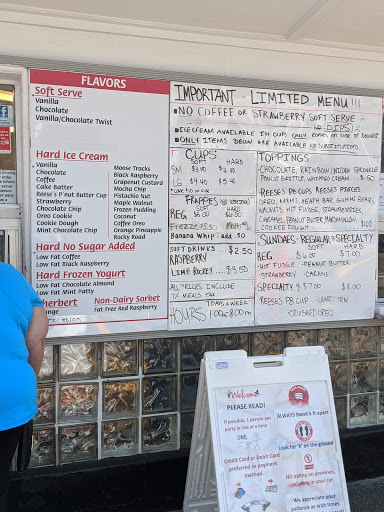 FLAVORS
Soft Serve
Vanilla
Chocolate
Vanilla/Chocolate Twist
Hard Ice Cream
Vanilla
Chocolate
Coffee
Cake Batter
Reese's P Nut Butter Cup
Strawberry
Chocolate Chip
Oreo Cookie
Cookie Dough
Mint Chocolate Chip
Moose Tracks
Black Raspberry
Grapenut Custard
Mocha Chip
Pistachio Nut
Maple Walnut
Frozen Pudding
Coconut
Coffee Oreo
Orange Pineapple
Rocky Road
Hard No Sugar Added
Low Fat Coffee
Low Fat Black Raspberry
Hard Frozen Yogurt
Low Fat Chocolate Almond
Low Fat Mint Patty
Sherbert
Non-Dairy Sorbet
Fat Free Red Raspberry
IMPORTANT - LIMITED MENU!!!
•NO COFFEE OR STRAWBERRY SOFT SERVE
NO DIPS!
•ICE CREAM AVAILABLE IN CUPS ONLY
•ONLY ITEMS BELOW ARE AVAILABLE NO SUBSTITUTIONS
CUPS
SOFT HARD
SM.
LG.
FRAPPES
SOFT HARD
REG $6.00 $6.00
BANANA WHIP - ADD .50
SOFT DRINKS $2.50
RASPBERRY
LIME RICKEY $3.50
ALL PRICES INCLUDE
7% MEALS TAX
7 DAYS A WEEK
HOURS 1:00-8:00PM
TOPPINGS
CHOCOLATE, RAINBOW
WHIPPED CREAM $.50
REESES PB CUPS REESES PIECES
OREO, M&M'S, HEATH BAR, GUMMI BEARS
WALNUTS, HOT FUDGE, STRAWBERRIES,
CARAMEL, PEANUT BUTTER, MARSHMALLOW,
COOKIE DOUGH $1.00
SUNDAES - REGULAR & SPECIALTY
SOFT HARD
REG $6.00 $7.00
HOT FUDGE - PEANUT BUTTER
STRAWBERRY - CARAMEL
SPECIALTY $7.00 $8.00
REESES PB CUP - UNICORN
CRUSHED OREO
Welcome
PLEASE READ!
If possible, 1 person per
party in line at a time
Credit Card or Debit Card
preferred as payment
method
ALWAYS Stand 6 ft apart
Look for "X" on the ground
NO eating on premises,
including in your car
We appreciate your
patience as wait times